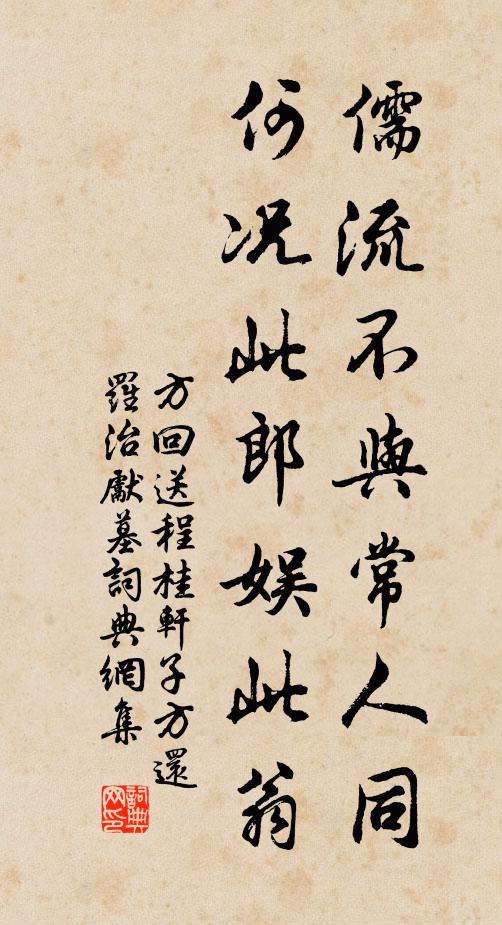 儒流不與常人同
何况此郎娱此翁
方回送程桂軒子方還
羅治獻墓詞典網集
詞典網印